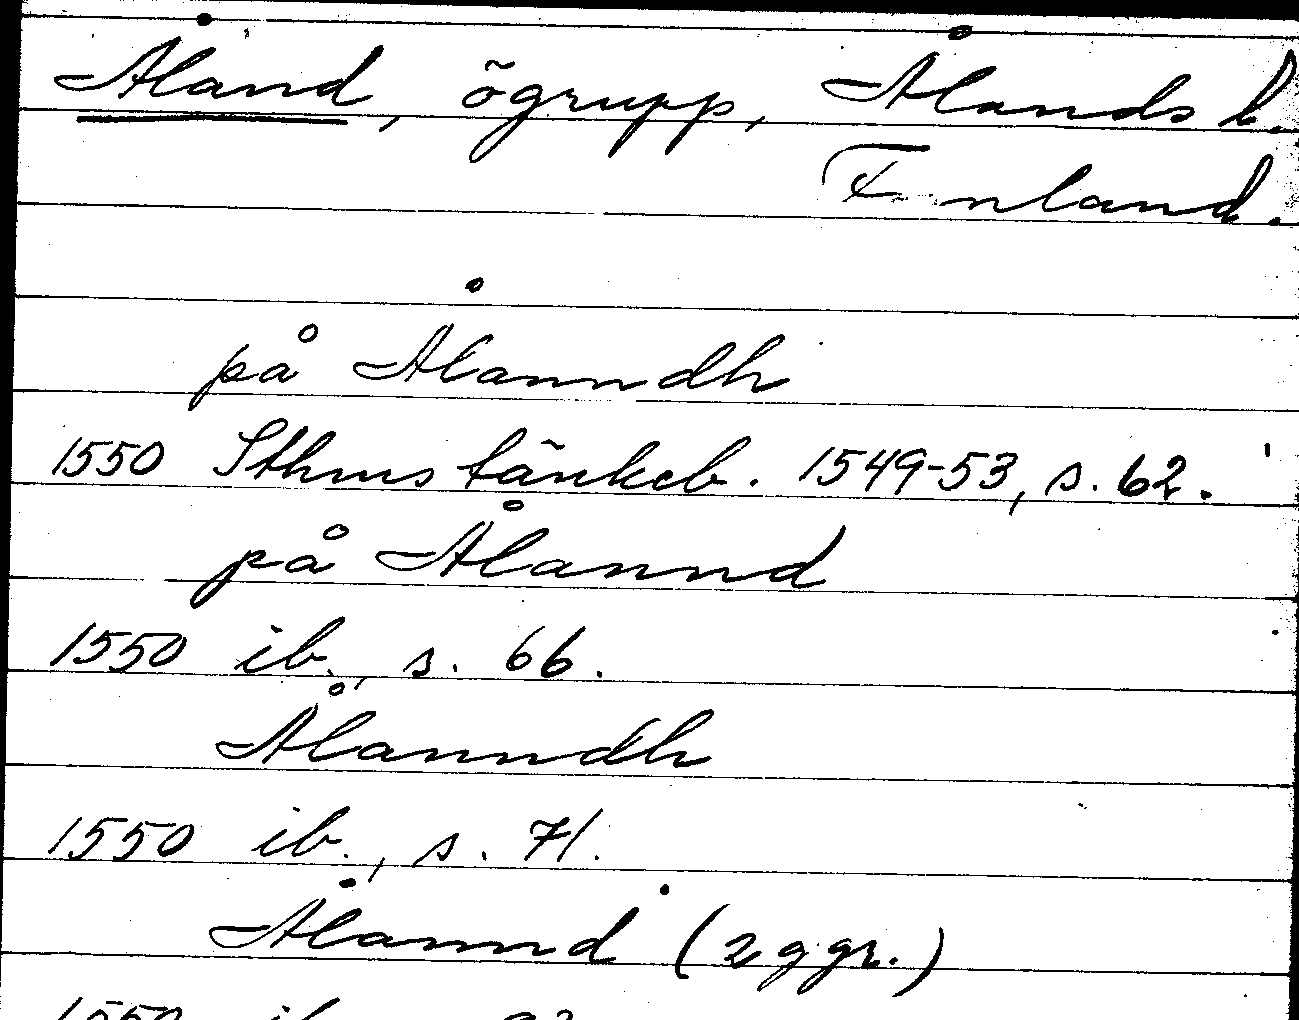 Åland, ögrupp, Ålands l.
Finland.
på Ålanndh
1550 Sthms tänkeb. 1549-53, s. 62.
på Ålannd
1550 ib., s. 66.
Ålanndh
1550 ib., s. 71.
Ålannd (2 ggr.)
1550 ib.